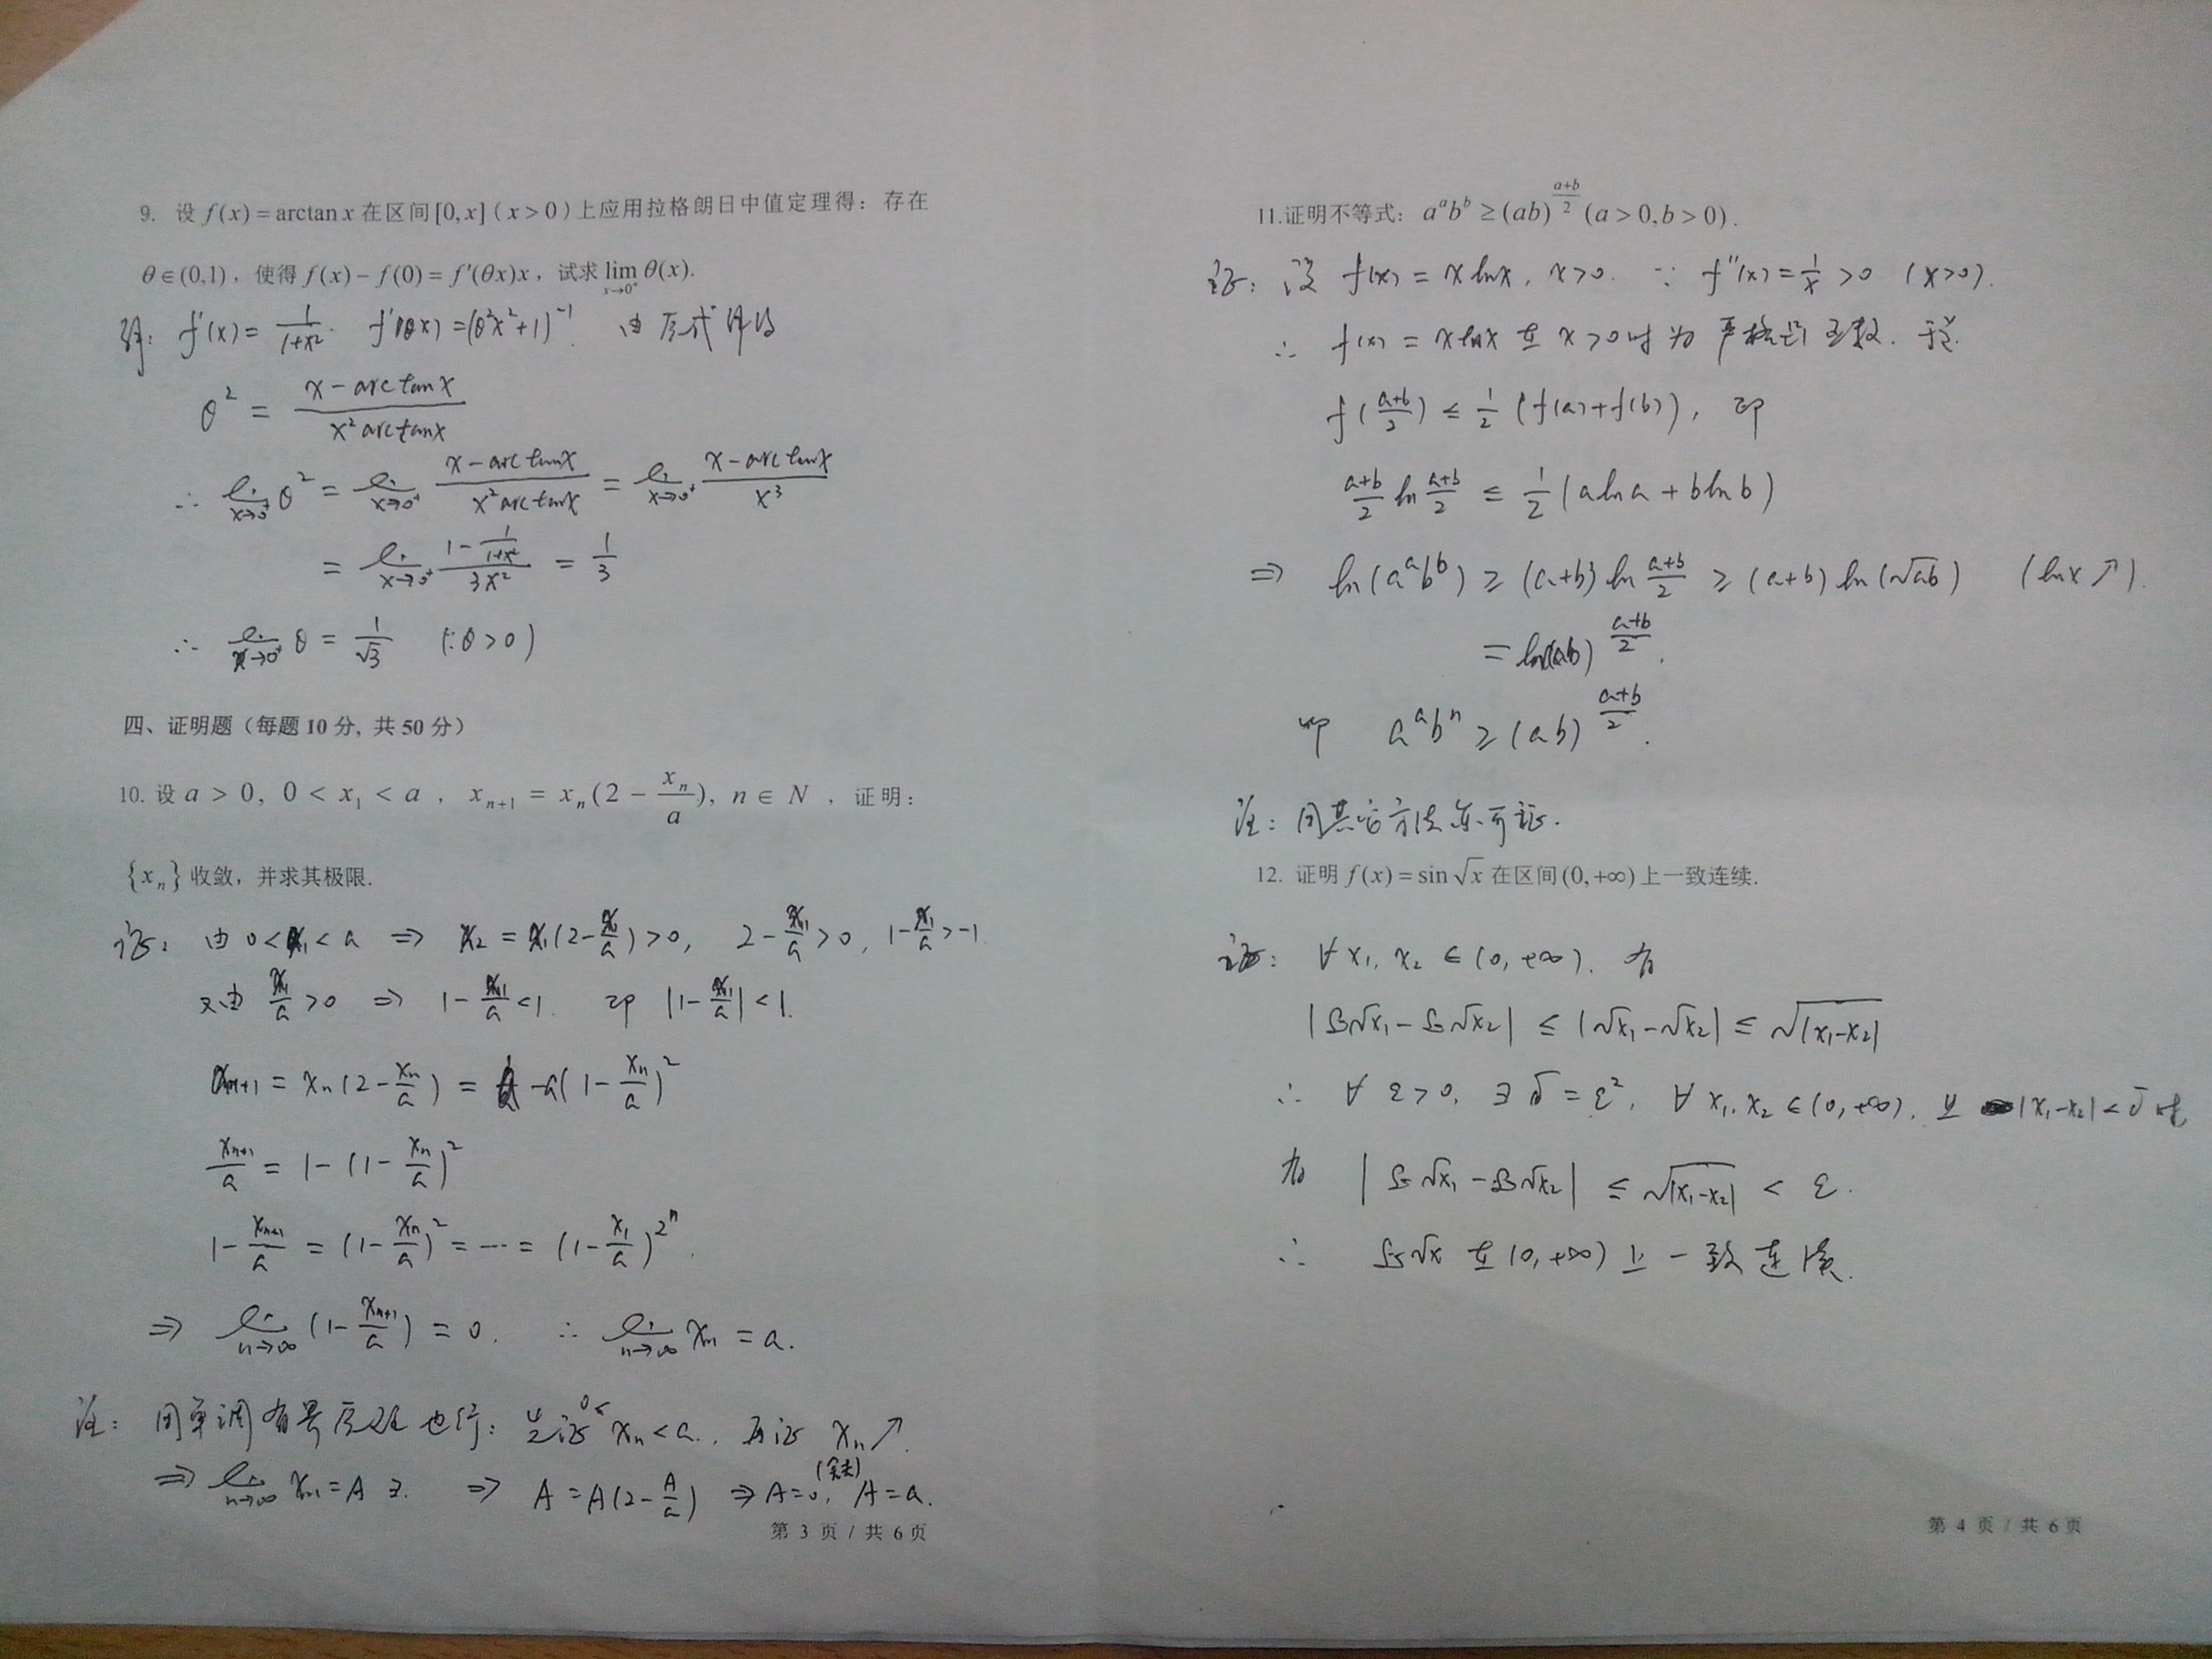 9. 设 f(x) = arctan x 在区间[0, x] (x > 0)上应用拉格朗日中值定理得：存在
θ∈(0,1)，使得 f(x) − f(0) = f′(θx)x，试求 lim_{x→0⁺} θ(x).
解: f′(x) = 1/(1+x²). f′(θx) = (θ²x²+1)⁻¹. 由原式解得
θ² = (x − arctanx)/(x² arctanx)
∴ lim_{x→0⁺} θ² = lim_{x→0⁺} (x − arctanx)/(x² arctanx) = lim_{x→0⁺} (x − arctanx)/x³
= lim_{x→0⁺} (1 − 1/(1+x²))/(3x²) = 1/3
∴ lim_{x→0⁺} θ = 1/√3 (∵θ>0)
四、证明题（每题 10 分, 共 50 分）
10. 设 a > 0, 0 < x₁ < a , xₙ₊₁ = xₙ(2 − xₙ/a), n ∈ N ，证明：
{xₙ} 收敛，并求其极限.
证: 由 0 < x₁ < a ⇒ x₂ = x₁(2 − x₁/a) > 0, 2 − x₁/a > 0, 1 − x₁/a > −1.
又由 x₁/a > 0 ⇒ 1 − x₁/a < 1. 即 |1 − x₁/a| < 1.
xₙ₊₁ = xₙ(2 − xₙ/a) = a − a(1 − xₙ/a)²
xₙ₊₁/a = 1 − (1 − xₙ/a)²
1 − xₙ₊₁/a = (1 − xₙ/a)² = ⋯ = (1 − x₁/a)^{2ⁿ}.
⇒ lim_{n→∞} (1 − xₙ₊₁/a) = 0. ∴ lim_{n→∞} xₙ = a.
注: 用单调有界原理也行: 先证 0< xₙ < a., 再证 xₙ↗.
⇒ lim_{n→∞} xₙ = A ∃. ⇒ A = A(2 − A/a) ⇒ A=0, (舍去) A=a.
第 3 页 / 共 6 页
11.证明不等式：aᵃbᵇ ≥ (ab)^{(a+b)/2} (a > 0, b > 0).
证: 设 f(x) = x lnx, x>0. ∵ f″(x) = 1/x > 0 (x>0).
∴ f(x) = x lnx 在 x>0时为严格凸函数. 于是
f((a+b)/2) ≤ 1/2 (f(a)+f(b)), 即
(a+b)/2 ln (a+b)/2 ≤ 1/2 (alna + blnb)
⇒ ln(aᵃbᵇ) ≥ (a+b) ln (a+b)/2 ≥ (a+b) ln(√ab) (lnx ↗).
= ln(ab)^{(a+b)/2}.
即 aᵃbⁿ ≥ (ab)^{(a+b)/2}.
注: 用其它方法亦可证.
12. 证明 f(x) = sin √x 在区间(0,+∞)上一致连续.
证: ∀ x₁, x₂ ∈ (0, +∞). 有
|sin√x₁ − sin√x₂| ≤ |√x₁ − √x₂| ≤ √|x₁−x₂|
∴ ∀ ε > 0, ∃ δ = ε², ∀ x₁, x₂ ∈ (0, +∞), 且 |x₁−x₂| < δ 时
有 |sin√x₁ − sin√x₂| ≤ √|x₁−x₂| < ε.
∴ sin√x 在 (0, +∞) 上一致连续.
第 4 页 / 共 6 页